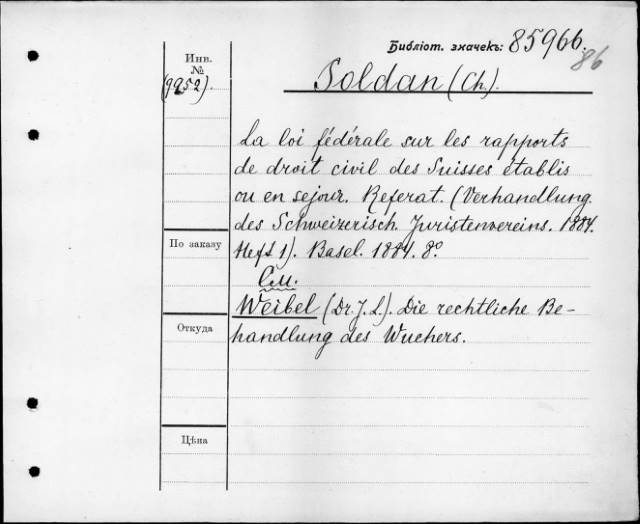 Библіот. значекъ: 85966.
86
Инв.
№
(9952).
Soldan (Ch.).
La loi fédérale sur les rapports
de droit civil des Suisses établis
ou en sejour. Referat. (Verhandlung.
des Schweizerisch. Juristenvereins. 1884.
По заказу
Heft 1). Basel. 1884. 8º
См.
Weibel (Dr. J. L.). Die rechtliche Be-
Откуда
handlung des Wuchers.
Цѣна